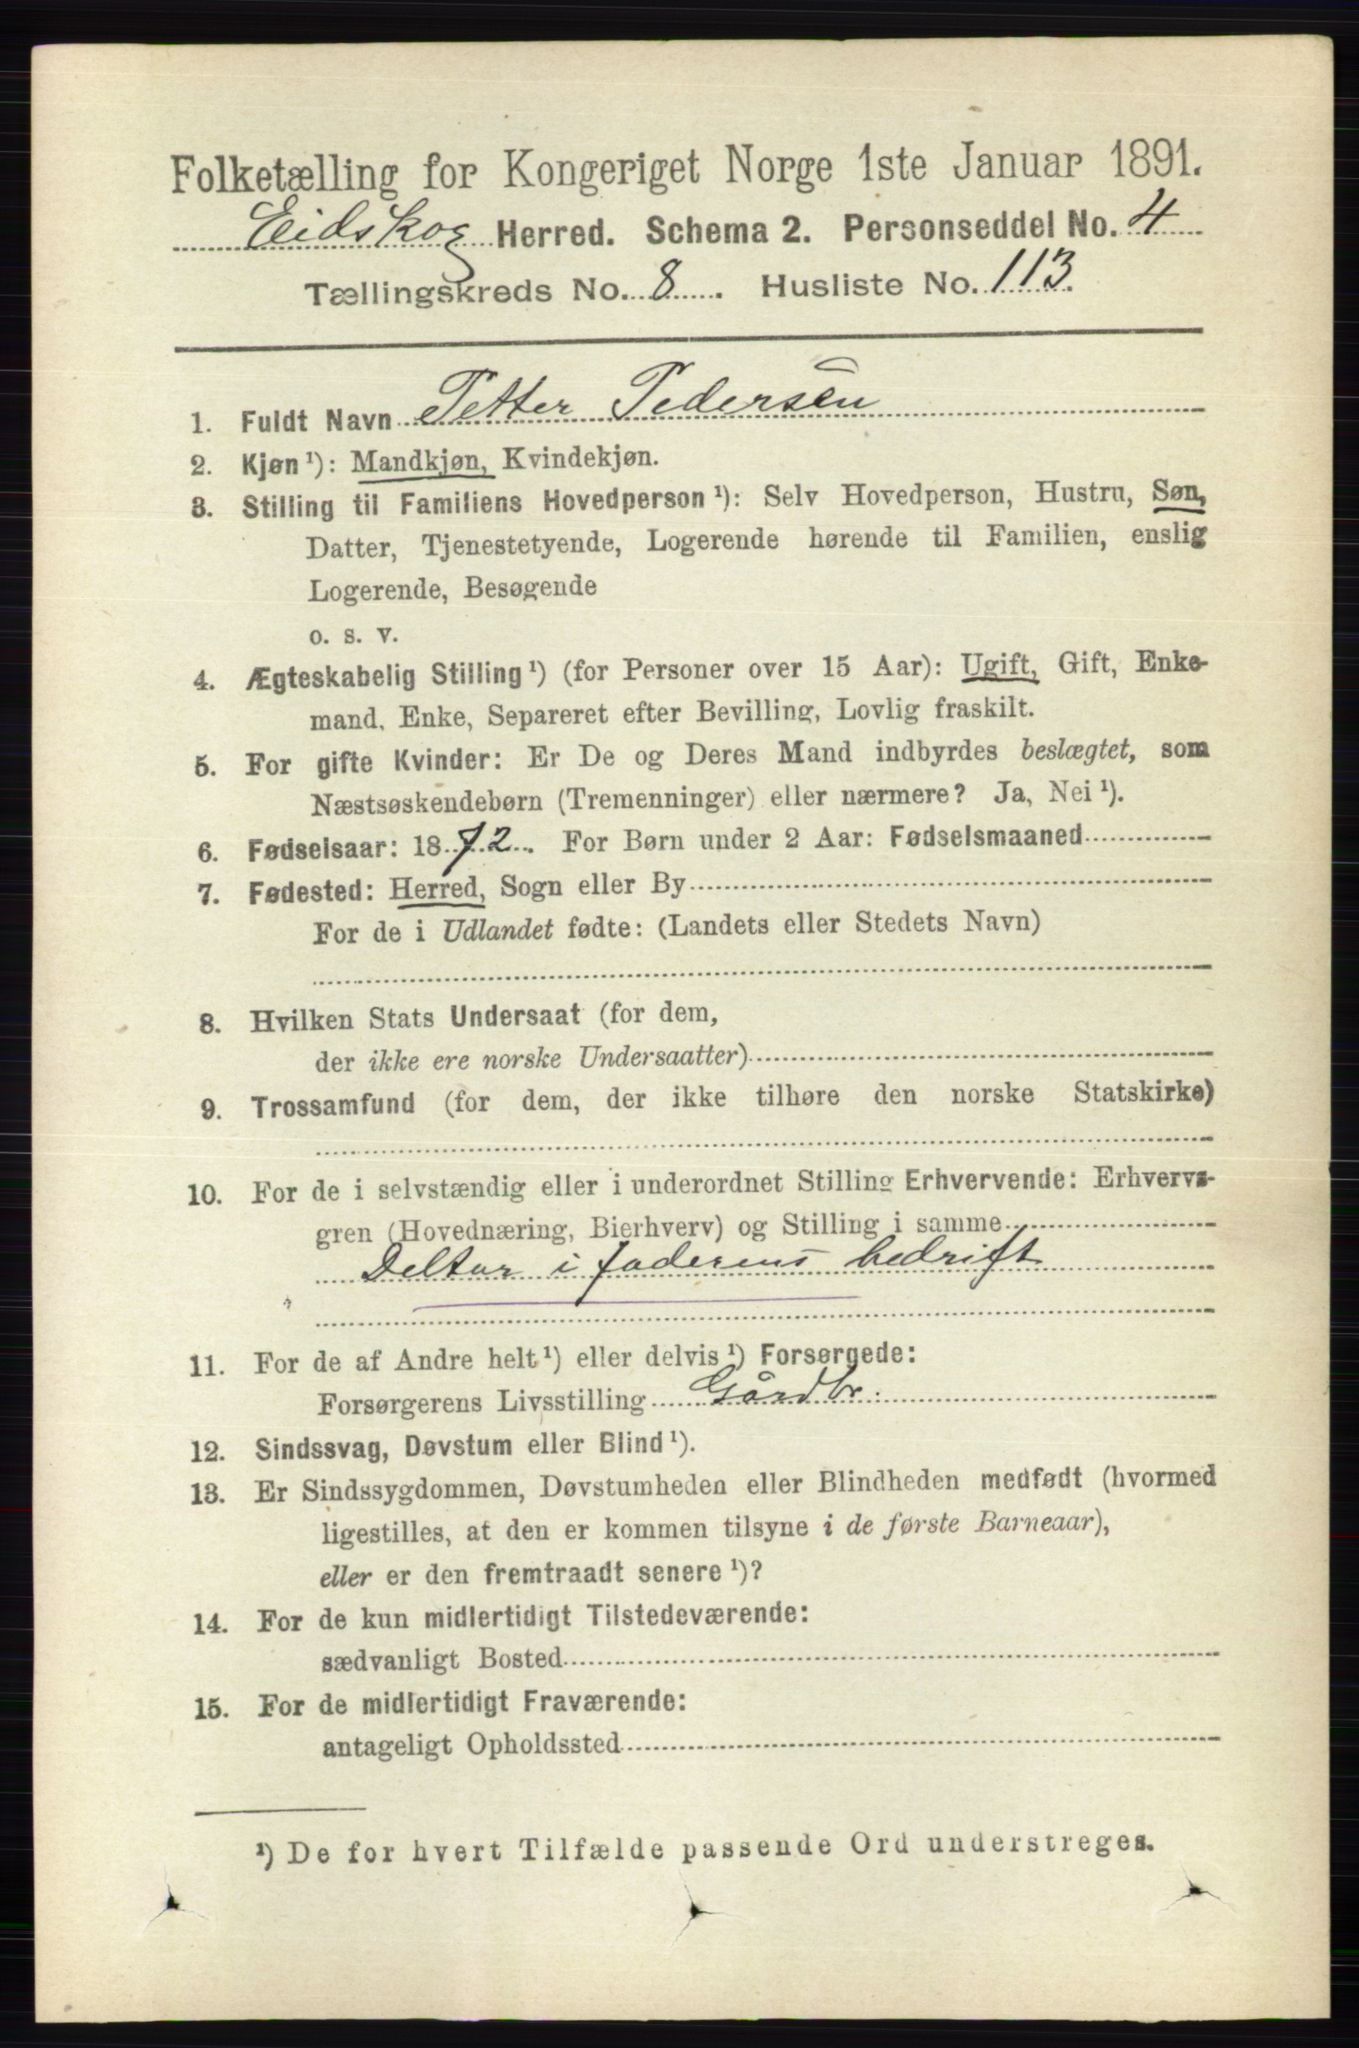 Folketælling for Kongeriget Norge 1ste Januar 1891.
Eidskog Herred. Schema 2. Personseddel No. 4
Tællingskreds No. 8. Husliste No. 113.
1. Fuldt Navn Petter Pedersen
2. Kjøn ¹): Mandkjøn, Kvindekjøn.
3. Stilling til Familiens Hovedperson ¹): Selv Hovedperson, Hustru, Søn,
Datter, Tjenestetyende, Logerende hørende til Familien, enslig
Logerende, Besøgende
o. s. v.
4. Ægteskabelig Stilling ¹) (for Personer over 15 Aar): Ugift, Gift, Enke-
mand, Enke, Separeret efter Bevilling, Lovlig fraskilt.
5. For gifte Kvinder: Er De og Deres Mand indbyrdes beslægtet, som
Næstsøskendebørn (Tremenninger) eller nærmere? Ja, Nei ¹).
6. Fødselsaar: 1872. For Børn under 2 Aar: Fødselsmaaned
7. Fødested: Herred, Sogn eller By
For de i Udlandet fødte: (Landets eller Stedets Navn)
8. Hvilken Stats Undersaat (for dem,
der ikke ere norske Undersaatter)
9. Trossamfund (for dem, der ikke tilhøre den norske Statskirke)
10. For de i selvstændig eller i underordnet Stilling Erhvervende: Erhvervs-
gren (Hovednæring, Bierhverv) og Stilling i samme
Deltar i faderens bedrift
11. For de af Andre helt ¹) eller delvis ¹) Forsørgede:
Forsørgerens Livsstilling Gårdbr.
12. Sindssvag, Døvstum eller Blind ¹).
13. Er Sindssygdommen, Døvstumheden eller Blindheden medfødt (hvormed
ligestilles, at den er kommen tilsyne i de første Barneaar),
eller er den fremtraadt senere ¹)?
14. For de kun midlertidigt Tilstedeværende:
sædvanligt Bosted
15. For de midlertidigt Fraværende:
antageligt Opholdssted
¹) De for hvert Tilfælde passende Ord understreges.